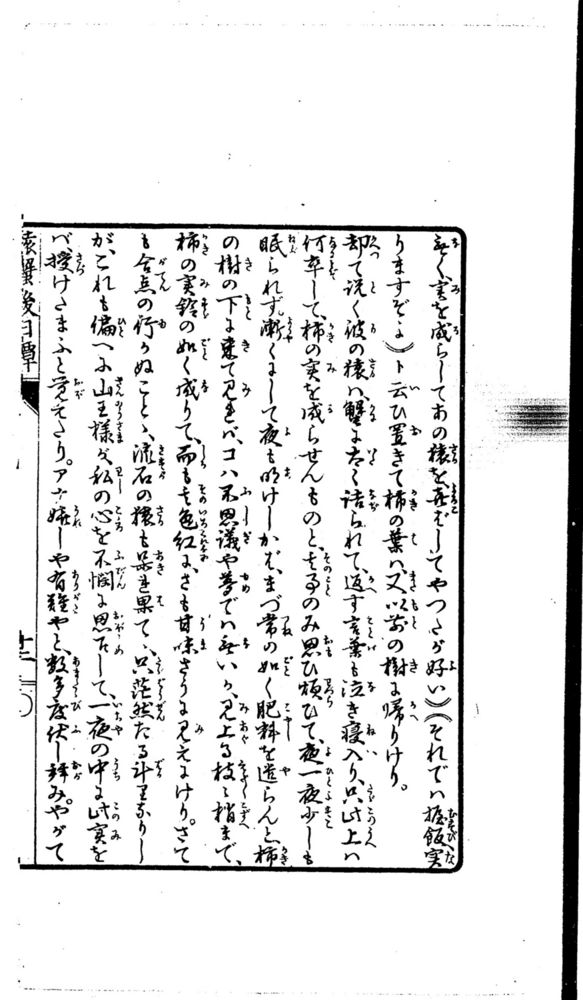 く実を成らしてあの猿を喜ばしてやつたが好い》《それでハ握飯実
りますぞよ》ト云ひ置きて柿の葉ハ又以前の樹に帰りけり。
却て説く彼の猿ハ蟹に太く詰られて、返す言葉も泣き寝入り、只此上ハ
何卒して、柿の実を成らせんものと、其事のみ思ひ煩ひて、夜一夜少しも
眠られず。漸くにして夜も明けしかば、まづ常の如く肥料を遣らんと柿
の樹の下に来て見れバ、コハ不思議や夢でハ無いか、見上る枝々梢まで、
柿の実鈴の如く成りて、而も其色紅に、さも甘味さうに見えにけり。さて
も合点の行かぬことゝ、流石の猿も呆れ果て、只茫然たる計りなりし
が、これも偏へに山王様が私の心を不憫に思召して、一夜の中に此実を
バ、授けたまふと覚えたり。アナ嬉しや有難やと、数多度伏し拝みやがて
猿蟹後日譚